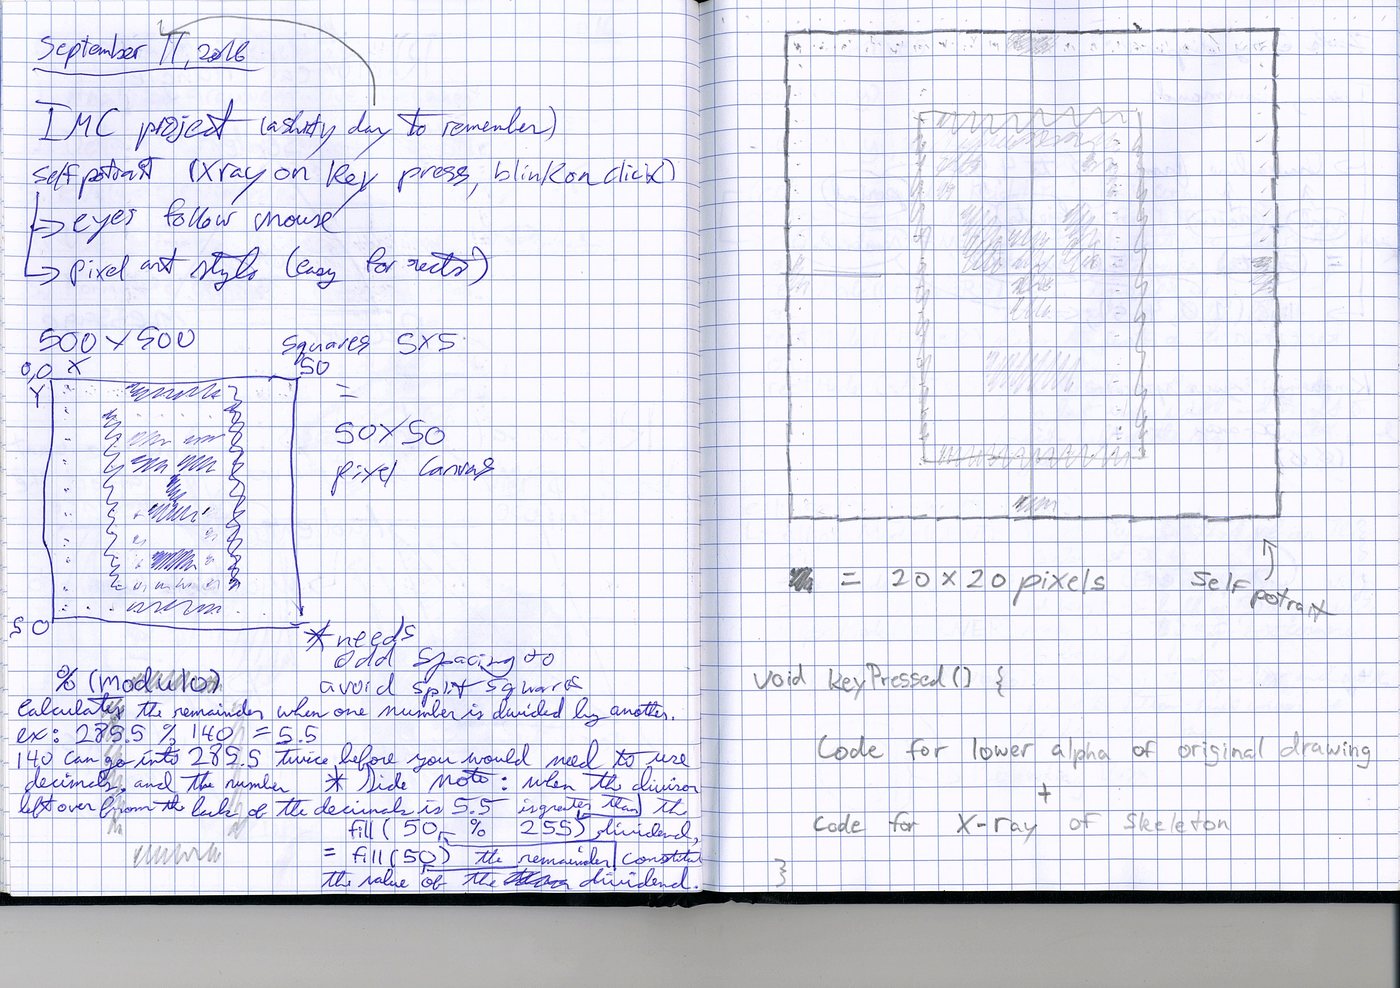 September 11, 2016
IMC project (a shitty day to remember)
self potrait (Xray on key press, blink on click)
→ eyes follow mouse
→ pixel art style (easy for rects)
500 x 500 squares 5x5
0,0 X 50
Y =
50x50
pixel canvas
50
* needs
odd spacing to
avoid split squares
% (modulo)
calculates the remainder when one number is divided by another.
ex: 285.5 % 140 = 5.5
140 can go into 285.5 twice before you would need to use
decimals, and the number
left over from the lack of the decimals is 5.5
* Side note: when the divisor
is greater than the
fill(50 % 255) dividend,
= fill(50) the remainder
the value of the dividend.
= 20 x 20 pixels
Self potrait
void keyPressed() {
Code for lower alpha of original drawing
+
Code for X-ray of Skeleton
}